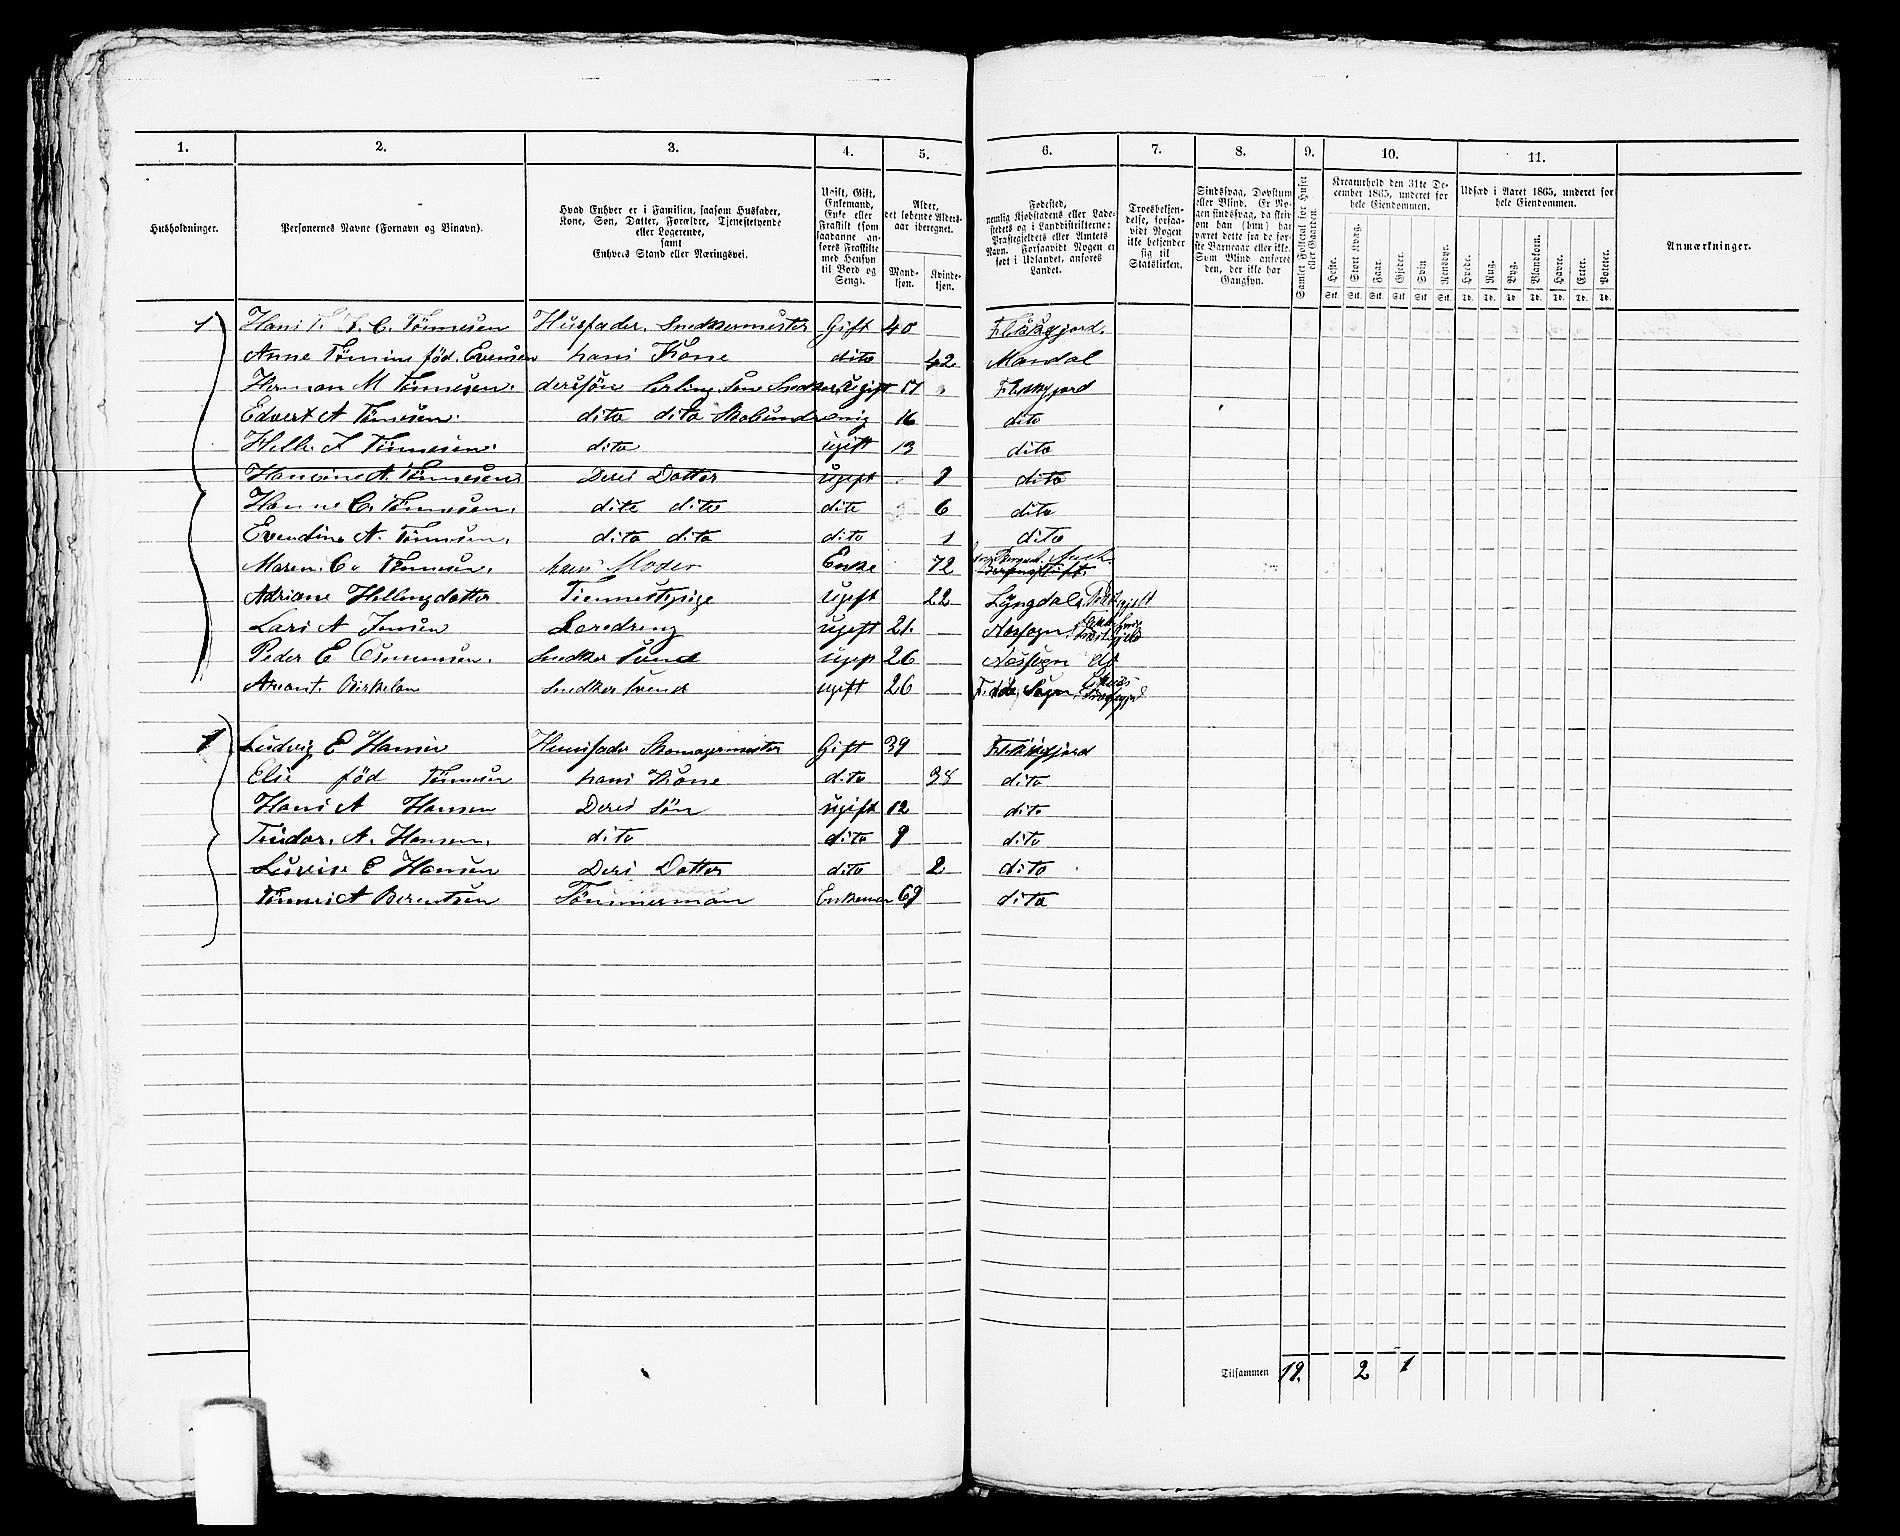 1. 2. 3. 4. 5. 6. 7. 8. 9. 10. 11.
Husholdninger.
Personernes Navne (Fornavn og Binavn).
Hvad Enhver er i Familien, saasom Husfader,
Kone, Søn, Datter, Forældre, Tjenestetyende
eller Logerende,
samt
Enhvers Stand eller Næringsvei.
Ugift, Gift,
Enkemand,
Enke eller
Fraskilt (som
saadanne an-
føres Fraskilte
med Hensyn
til Bord og
Seng).
Alder,
det løbende Alders-
aar iberegnet.
Mand-
kjøn.
Kvinde-
kjøn.
Fødested,
nemlig Kjøbstadens eller Lade-
stedets og i Landdistrikterne:
Præstegjeldets eller Amtets
Navn. Forsaavidt Nogen er
født i Udlandet, anføres
Landet.
Troesbekjen-
delse, forsaa-
vidt Nogen
ikke bekjender
sig til
Statskirken.
Sindssvag, Døvstum
eller Blind. Er No-
gen sindssvag, da skriv
om han (hun) har
været dette fra de før-
ste Barneaar eller ikke.
Som Blind anføres
den, der ikke har
Gangsyn.
Samlet Folketal for Huset
eller Gaarden.
Kreaturhold den 31te De-
cember 1865, underet for
hele Eiendommen.
Heste. Stort Kvæg. Faar. Gjeder. Svin. Rensdyr.
Stk. Stk. Stk. Stk. Stk. Stk.
Udsæd i Aaret 1865, underet for
hele Eiendommen.
Hvede. Rug. Byg. Blandkorn. Havre. Erter. Poteter.
Td. Td. Td. Td. Td. Td. Td.
Anmærkninger.
1 Hans T. C. Tønnesen Husfader. Snedkermester Gift 40 Flekkefjord.
Anne Tømine fød. Evensen hans Kone dito 42 Mandal
Herman M Tønnesen. deres søn Snedker Ugift 17 Flekkefjord
Edvert A Tønnesen. dito dito 16 dito
Helle. J Tønnesen. dito ugift 13 dito
Hansine A. Tønnesen Deres Datter ugift 9 dito
Hanne C. Tønnesen. dito dito dito 6 dito
Evendine A. Tønnesen. dito dito dito 1 dito
Maren. C. Tønnesen. hans Moder Enke 72
Adriane Hellengdatter Tiennestepige Ugift 22 Lyngdals
Lars A Jensen Læredreng ugift 21. Næssogn
Peder E Osmundsen. Snedker Svend ugift 26 Næssogn do
Amant. Birkelan Snedker Svend ugift 26 Fede Sogn
1 Ludvig E Hansen Huusfader Skomagermester Gift 39 Flekkefjord
Elie fød Tønnesen hans Kone dito 38 dito
Hans A Hansen Deres Søn ugift 12 dito
Teodor. A. Hansen. dito dito 9 dito
Lovise E Hansen Deres Datter dito 2 dito
Tønnes A Berentsen Tømmerman Enkeman 69 dito
Tilsammen 19. 2 1